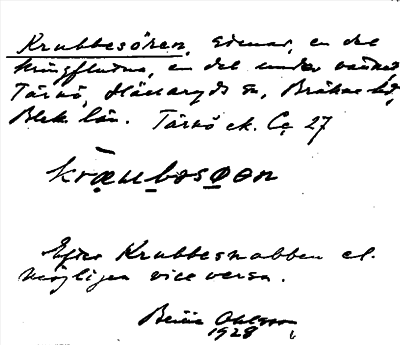 Krubbesören, stenar, en del
kringflutna, en del under vattnet,
Tärnö, Hällaryds sn, Bräkne hd,
Blek. län. Tärnö ek. Cç 27
Efter Krubbesnabben el.
möjligen vice versa.
Ohlsson
1928